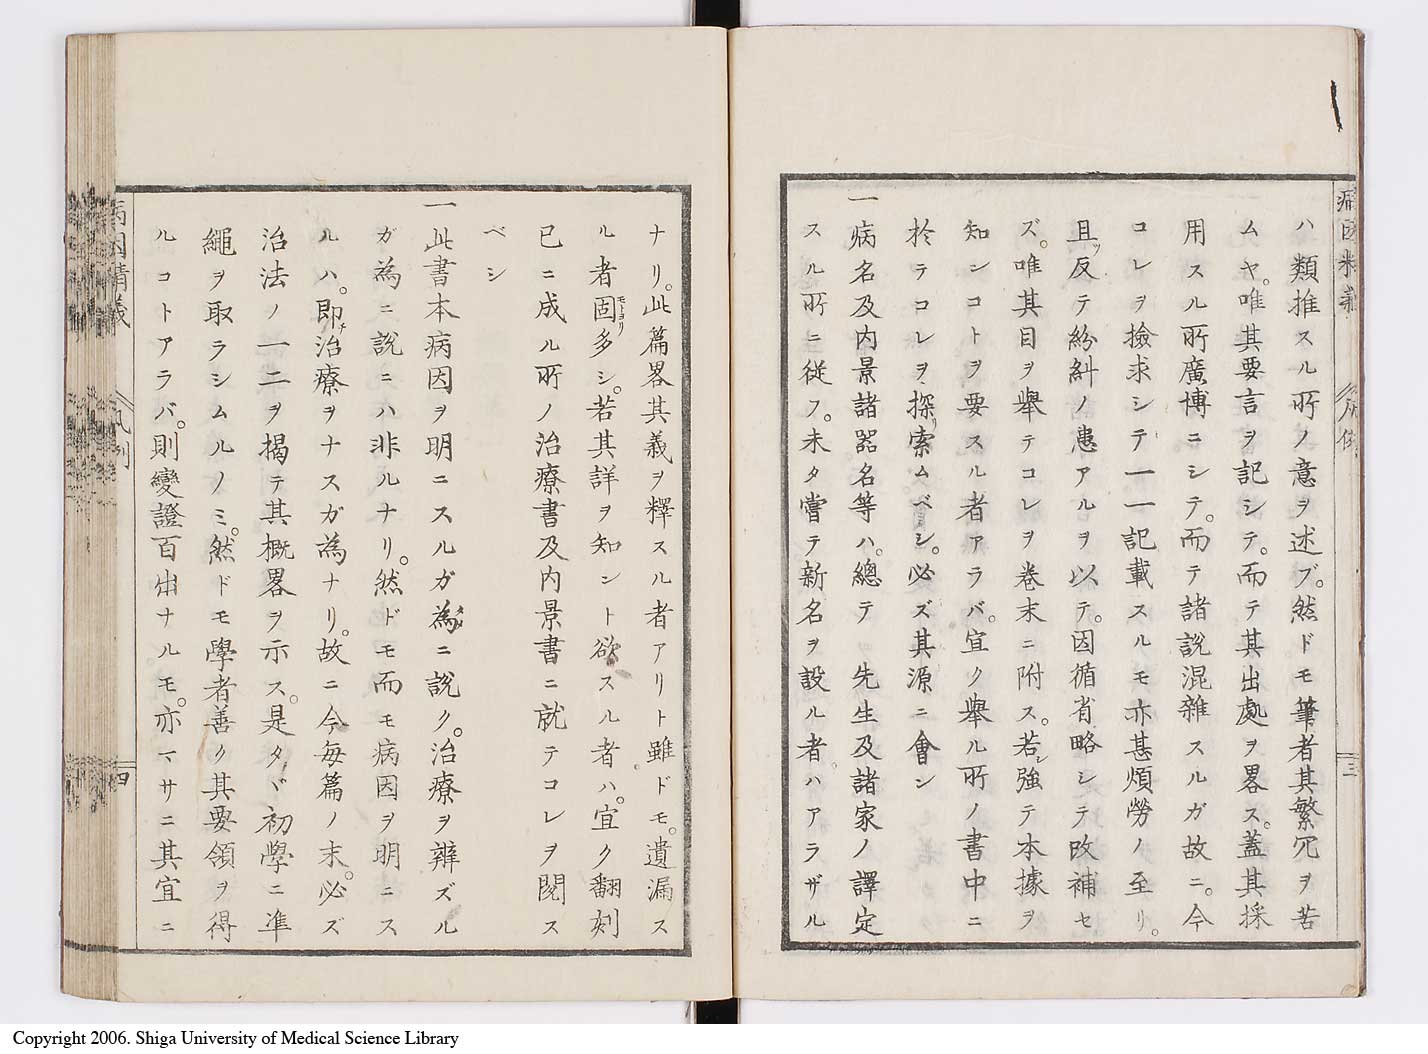 病因精義
凡例
三
ハ類推スル所ノ意ヲ述ブ。然ドモ筆者其繁冗ヲ苦
ムヤ。唯其要言ヲ記シテ。而テ其出處ヲ畧ス。蓋其採
用スル所廣博ニシテ。而テ諸説混雜スルガ故ニ。今
コレヲ撿求シテ一一記載スルモ亦甚煩勞ノ至リ。
且ツ反テ紛糾ノ患アルヲ以テ。因循省略シテ改補セ
ズ。唯其目ヲ舉テコレヲ卷末ニ附ス。若シ強テ本據ヲ
知ンコトヲ要スル者アラバ。宜ク舉ル所ノ書中ニ
於テコレヲ探リ索ムベシ。必ズ其源ニ會ン
一病名及内景諸器名等ハ。總テ 先生及諸家ノ譯定
スル所ニ従フ。未タ嘗テ新名ヲ設ル者ハアラザル
ナリ。此篇畧其義ヲ釋スル者アリト雖ドモ。遺漏ス
ル者固モトヨリ多シ。若其詳ヲ知ント欲スル者ハ。宜ク翻刻
已ニ成ル所ノ治療書及内景書ニ就テコレヲ閲ス
ベシ
一此書本病因ヲ明ニスルガ為タメニ説ク。治療ヲ辨ズル
ガ為ニ説ニハ非ルナリ。然ドモ而モ病因ヲ明ニス
ルハ。即チ治療ヲナスガ為ナリ。故ニ今毎篇ノ末。必ズ
治法ノ一二ヲ揭テ其概畧ヲ示ス。是タヾ初學ニ準
繩ヲ取ラシムルノミ。然ドモ學者善ク其要領ヲ得
ルコトアラバ。則變證百出ナルモ。亦マサニ其宜ニ
病因精義
凡例
四
Copyright 2006. Shiga University of Medical Science Library